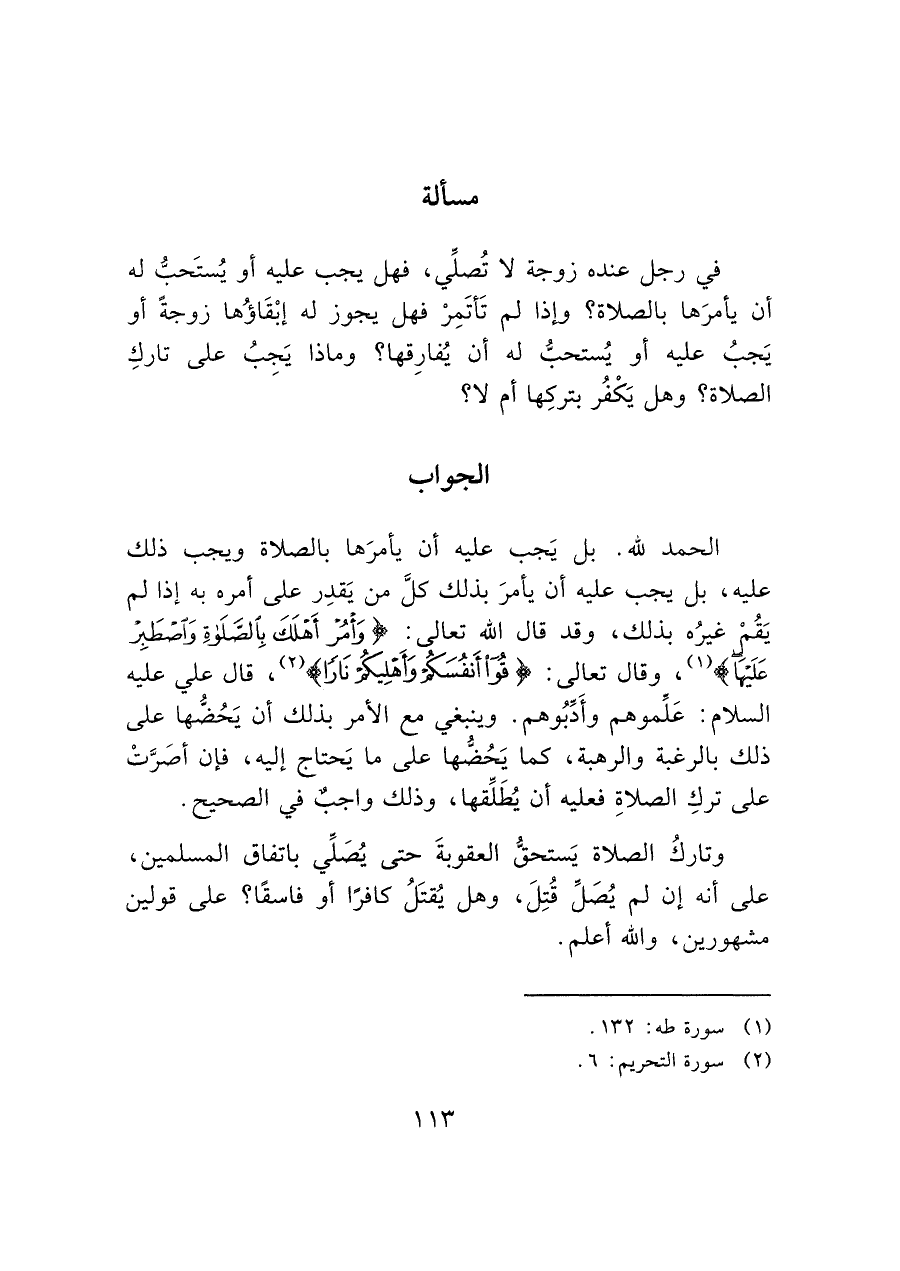 مسألة
في رجل عنده زوجة لا تُصلِّي، فهل يجب عليه أو يُستَحبُّ له
أن يأمرَها بالصلاة؟ وإذا لم تَأتَمِرْ فهل يجوز له إبْقَاؤُها زوجةً أو
يَجبُ عليه أو يُستحبُّ له أن يُفارِقها؟ وماذا يَجِبُ على تاركِ
الصلاة؟ وهل يَكْفُر بتركِها أم لا؟
الجواب
الحمد لله. بل يَجب عليه أن يأمرَها بالصلاة ويجب ذلك
عليه، بل يجب عليه أن يأمرَ بذلك كلَّ من يَقدِر على أمره به إذا لم
يَقُمْ غيرُه بذلك، وقد قال الله تعالى: ﴿ وَأْمُرْ أَهْلَكَ بِالصَّلَوٰةِ وَاصْطَبِرْ
عَلَيْهَا﴾(١)، وقال تعالى: ﴿ قُوٓا أَنفُسَكُمْ وَأَهْلِيكُمْ نَارًا﴾(٢)، قال علي عليه
السلام: عَلِّموهم وأَدِّبُوهم. وينبغي مع الأمر بذلك أن يَحُضُّها على
ذلك بالرغبة والرهبة، كما يَحُضُّها على ما يَحتاج إليه، فإن أصَرَّتْ
على تركِ الصلاةِ فعليه أن يُطَلِّقها، وذلك واجبٌ في الصحيح.
وتاركُ الصلاة يَستحقُّ العقوبةَ حتى يُصَلِّي باتفاق المسلمين،
على أنه إن لم يُصَلِّ قُتِلَ، وهل يُقتَلُ كافرًا أو فاسقًا؟ على قولين
مشهورين، والله أعلم.
(١) سورة طه: ١٣٢.
(٢) سورة التحريم: ٦.
١١٣